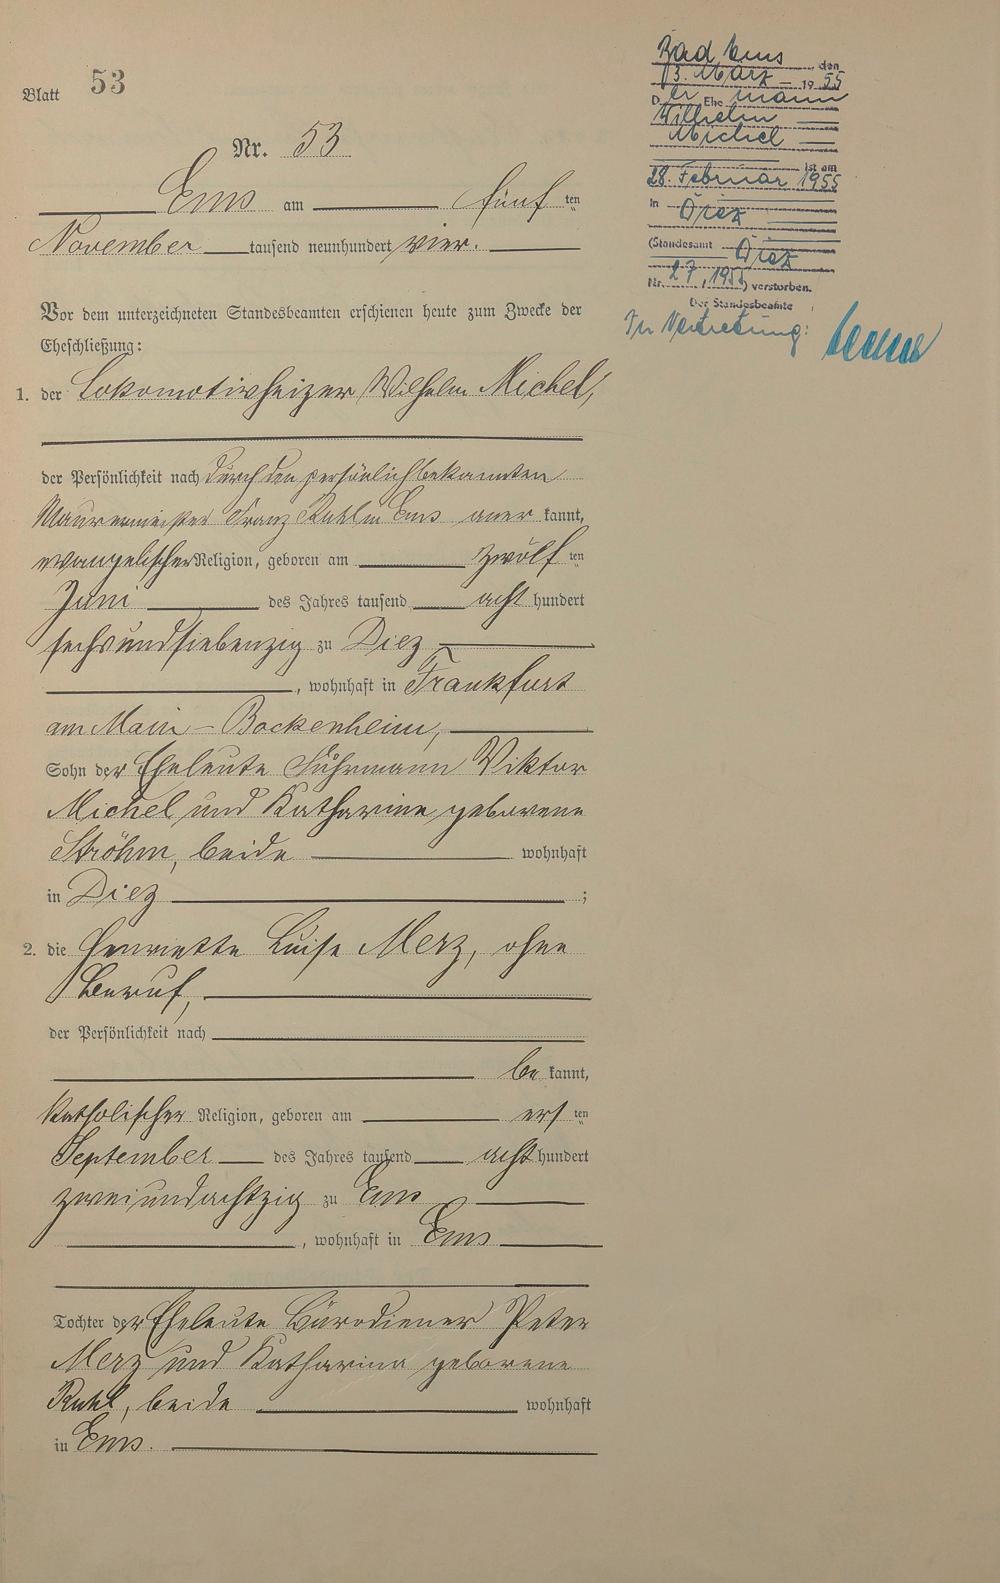 Blatt 53
Nr. 53
Ems am fünf ten
November tausend neunhundert vier.
Vor dem unterzeichneten Standesbeamten erschienen heute zum Zwecke der
Eheschließung:
1. der Lokomotivheizer Wilhelm Michel,
der Persönlichkeit nach durch den persönlich bekannten
Maurermeister Franz Ruhl in Ems aner kannt,
evangelischer Religion, geboren am zwölf ten
Juni des Jahres tausend acht hundert
sechsundsiebenzig zu Diez
, wohnhaft in Frankfurt
am Main - Bockenheim,
Sohn der Eheleute Fuhrmann Viktor
Michel und Katharine geborene
Ströhm, beide wohnhaft
in Diez ;
2. die Henriette Luise Merz, ohne
Beruf,
der Persönlichkeit nach
be kannt,
katholischer Religion, geboren am ers ten
September des Jahres tausend acht hundert
zweiundachtzig zu Ems
, wohnhaft in Ems
Tochter der Eheleute Bürodiener Peter
Merz und Katharina geborene
Ruhl, beide wohnhaft
in Ems.
Bad Ems, den
3. März 1955
Der Ehemann
Wilhelm
Michel
ist am
28. Februar 1955
in Diez
(Standesamt Diez
Nr. 27, 1955) verstorben.
Der Standesbeamte
In Vertretung: